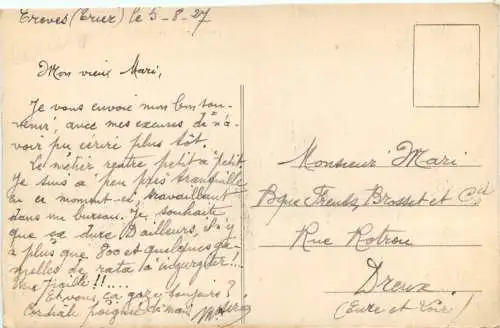 Treves (Trier) le 5-8-27
Mon vieux Mari,
Je vous envoie mon bon sou-
venir, avec mes excuses de n'a-
voir pu écrire plus tôt.
Le métier rentre petit à petit
Je suis à peu près tranquille
en ce moment-ci, travaillant
dans un bureau. Je souhaite
que ça dure. D'ailleurs, il n'y
a plus que 800 et quelques ga-
melles de rata à ingurgiter!!.
Une paille!!....
Et vous, ça gaze toujours?
Cordiale poignée de main
Monsieur Mari
Bque Brosset et Cie
Rue Rotrou
Dreux
(Eure et Loir)